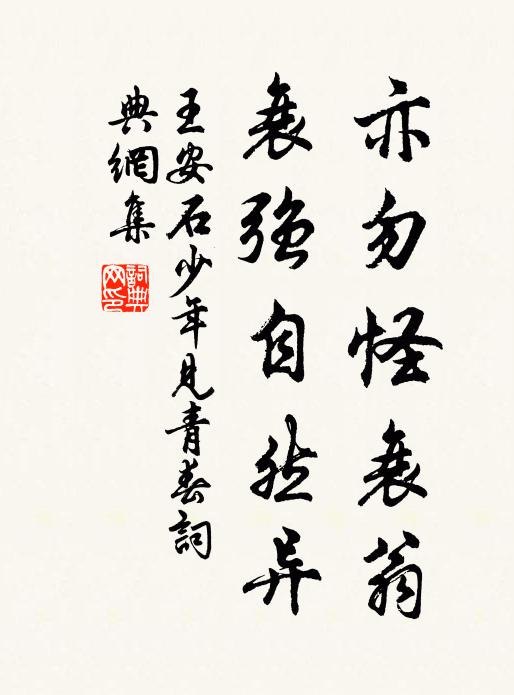 亦勿怪衰翁
衰強自然异
王安石少年見青春詞
典網集
詞典網印